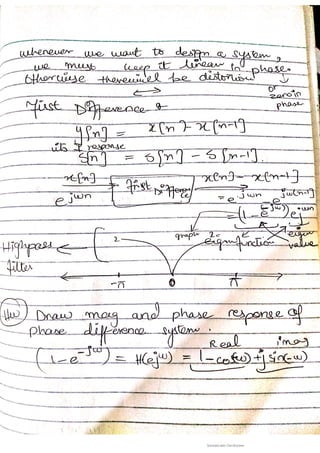 whenever we want to design a system,
we must keep it linear in phase.
Otherwise there will be distortion ↓
or zero in phase
First Difference :
y[n] = x[n] - x[n-1]
its I response
S[n] = δ[n] - δ[n-1].
x[n] → First Difference → x[n] - x[n-1]
e^{jωn} = e^{jωn} - e^{jω(n-1)}
= (1 - e^{-jω}) e^{jωn}
graph 2 eigen function eigen value
Highpass filter
2
-π 0 π
HW Draw mag and phase response of
phase difference system.
Real imag
(1 - e^{-jω}) = H(e^{jω}) = 1 - cos(ω) + j sin(-ω)